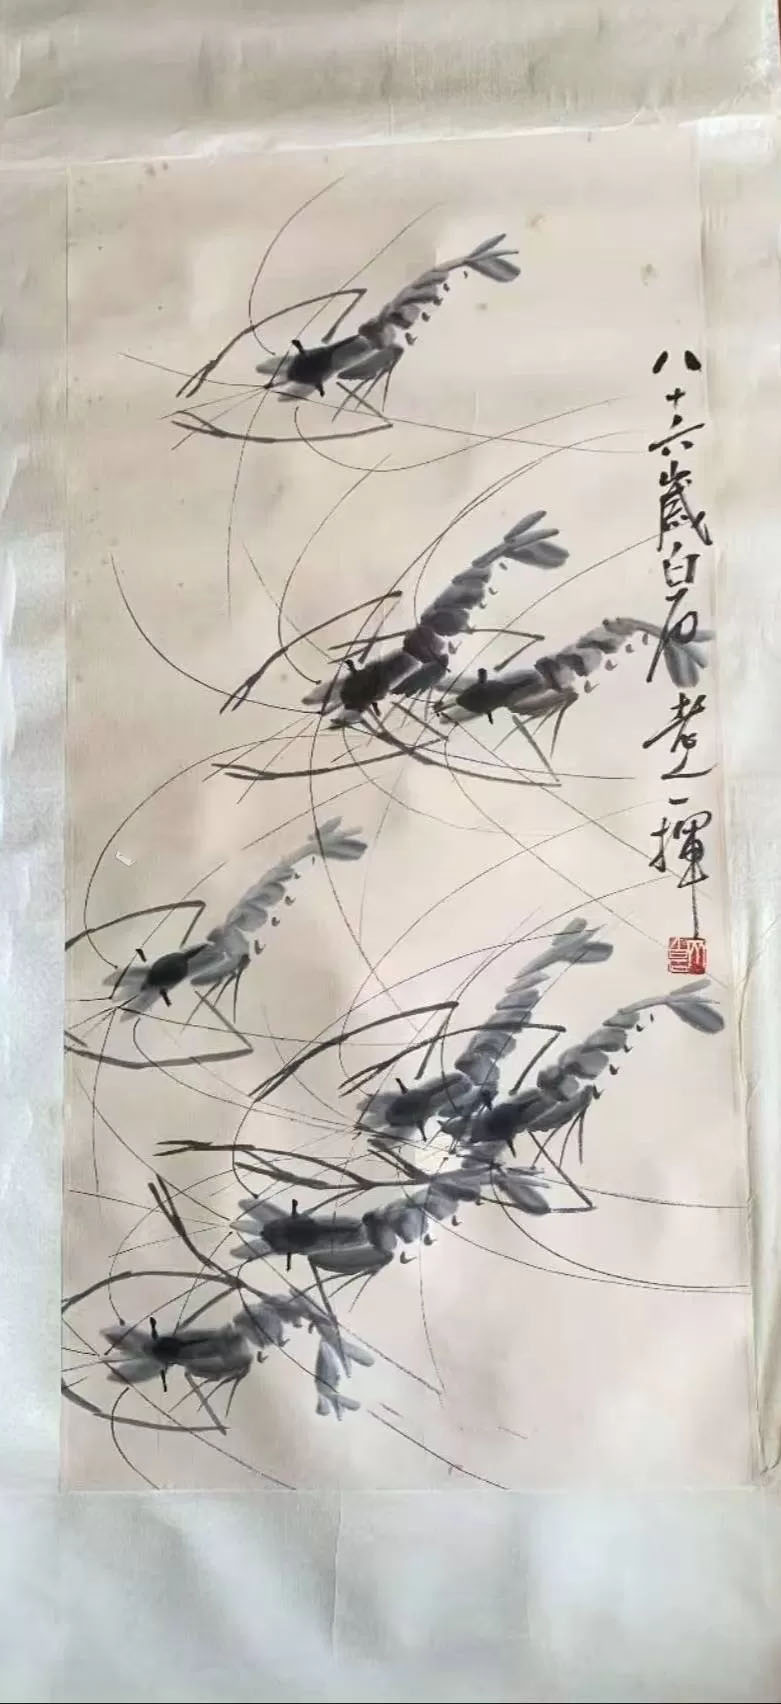 八十六歲白石老人一揮